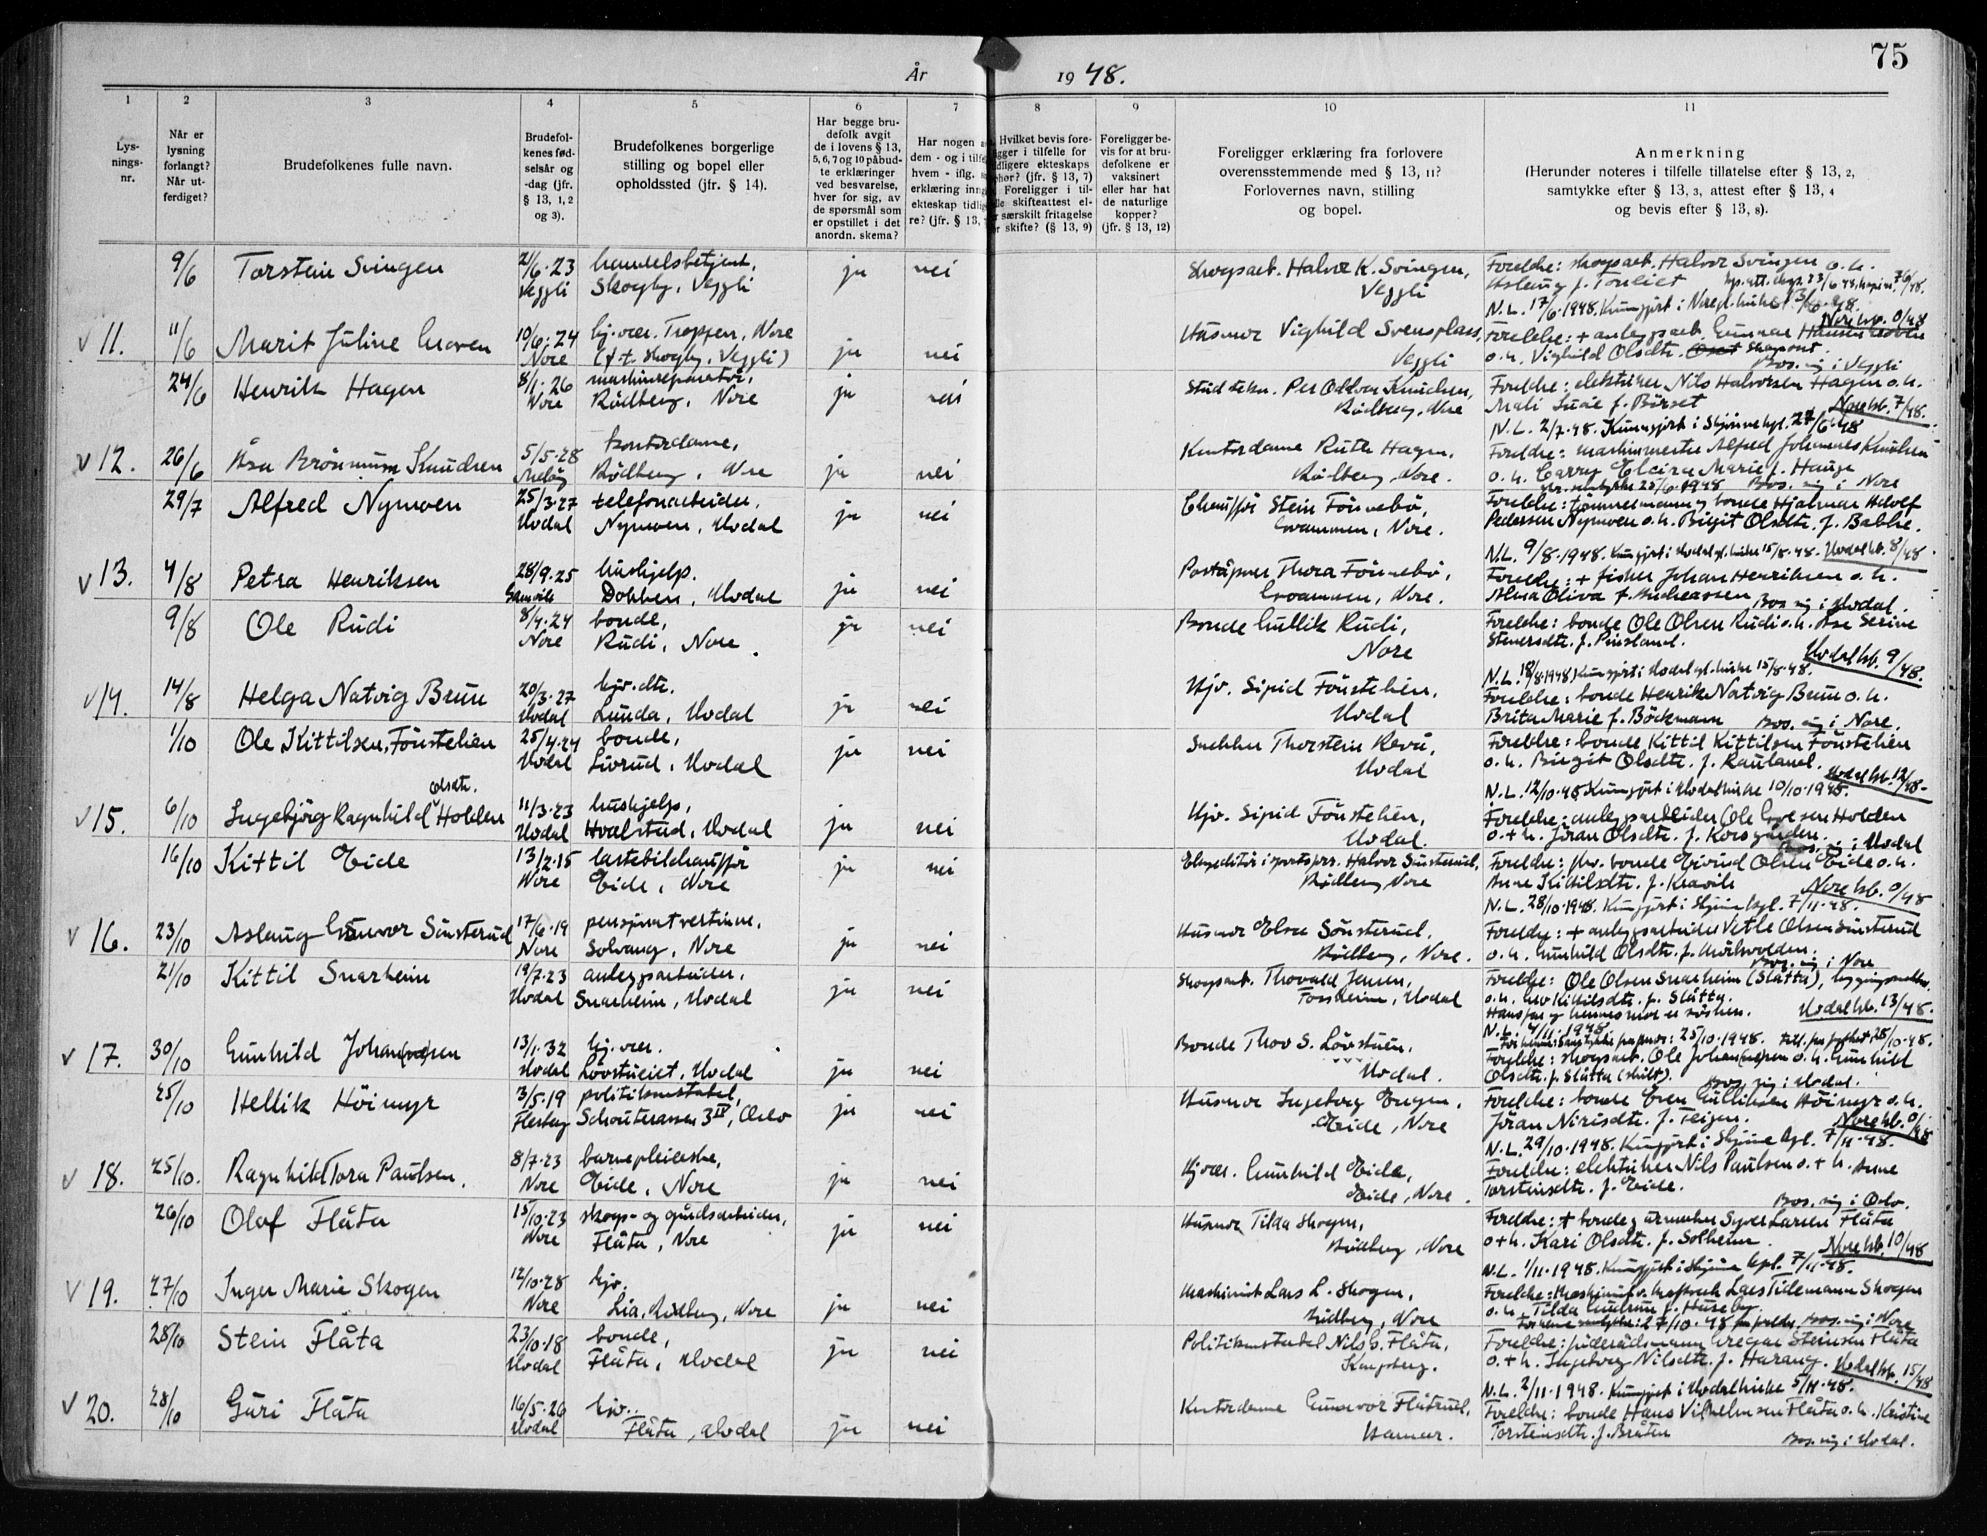 75
År 1948.
1 2 3 4 5 6 7 8 9 10 11
Lys-
nings-
nr.
Når er
lysning
forlangt?
Når ut-
ferdiget?
Brudefolkenes fulle navn.
Brudefol-
kenes fød-
selsår og
-dag (jfr.
§ 13, 1, 2
og 3).
Brudefolkenes borgerlige
stilling og bopel eller
opholdssted (jfr. § 14).
Har begge bru-
defolk avgit
de i lovens § 13,
5, 6, 7 og 10 påbud-
te erklæringer
ved besvarelse,
hver for sig, av
de spørsmål som
er opstillet i det
anordn. skema?
Har nogen
dem - og i tilfe
hvem - iflg.
erklæring inng
ekteskap tidlig
re? (jfr. § 13,
Hvilket bevis fore-
gger i tilfelle for
dligere ekteskaps
phør? (jfr. § 13, 7)
Foreligger i til-
lle skifteattest el-
r særskilt fritagelse
or skifte? (§ 13, 9)
Foreligger be-
vis for at bru-
defolkene er
vaksinert
eller har hat
de naturlige
kopper?
(jfr. § 13, 12)
Foreligger erklæring fra forlovere
overensstemmende med § 13, 11?
Forlovernes navn, stilling
og bopel.
Anmerkning
(Herunder noteres i tilfelle tillatelse efter § 13, 2,
samtykke efter § 13, 3, attest efter § 13, 4
og bevis efter § 13, 8).
9/6 Torstein Svingen 2/6.23 Veggli handelsbetjent, Skogly, Veggli ja nei Skogsarb. Halvor K. Svingen, Veggli
Foreldre: skogsarb. Halvor Svingen o.h.
N.L. 17/6 1948. Kunngjort i Nore
v 11. 11/6 Marit Juline 10/6.24 Nore hj.vær. Troppen, Nore (f.t. Skogly, Veggli) ja nei Husmor Vighild Svensplass, Veggli
o.h. Vighild Olsdtr.
Bos. sig i Veggli
24/6 Henrik Hagen 8/1.26 Nore maskinreparatør, Rødberg, Nore ja nei Stud. tekn. Per Oddvar Knudsen, Rødberg, Nore
Foreldre: elektriker Nils Halvorsen Hagen o.h.
Nore kb. 7/48.
N.L. 2/7.48. Kunngjort i Skjønne kpl. 27/6.48
v 12. 26/6 Åsa Brönmum Knudsen 5/5.28 kontordame, Rødberg, Nore ja nei Kontordame Ruth Hagen, Rødberg, Nore.
Foreldre: maskinmester Alfred Johannes Knudsen
25/6.1948 Bos. sig i Nore
29/7 Alfred Nymoen 25/3.27 Uvdal telefonarbeider, Nymoen, Uvdal ja nei Chauffør Stein Fönnebö, Nore.
Foreldre: tömmermann og bonde Hjalmar Adolf
Pedersen Nymoen o.h. Birgit Olsdtr. f. Bakke.
N.L. 9/8.1948. Kunngjort i Uvdal gl. kirke 15/8.48. Uvdal kb. 8/48
v 13. 4/8 Petra Henriksen 28/9.25 hushjelp. Dokken, Uvdal ja nei Poståpner Thora Fönnebö, Nore.
Foreldre: + fisker Johan Henriksen o.h.
Alma Oliva f. Andreassen Bos. sig i Uvdal.
9/8 Ole Rudi 8/4.24 Nore bonde, Rudi, Nore. ja nei Bonde Gullik Rudi, Nore
Foreldre: bonde Ole Olsen Rudi o.h. Åse Serine
Uvdal kb. 9/48.
N.L. 18/8.1948. Kunngjort i Uvdal gl. kirke 15/8.48.
v 14. 14/8 Helga Natvig Bruu 20/3.27 Uvdal hjv. dtr. Lunda, Uvdal ja nei Hjv. Sigrid Fönstelien, Uvdal
Foreldre: bonde Henrik Natvig Bruu o.h.
Brita Marie f. Böckmann Bos. sig i Nore.
1/10 Ole Kittilsen Fönstelien 25/4.24 Uvdal bonde, Livrud, Uvdal ja nei Snekker Thorstein Uvdal
Foreldre: bonde Kittil Kittilsen Fönstelien
o.h. Birgit Olsdtr. f. Rauland.
Uvdal kb. 12/48.
N.L. 12/10.48. Kunngjort i Uvdal kirke 10/10.1948.
v 15. 6/10 Ingebjörg Ragnhild Olsdtr. Holden 11/3.23 Uvdal hushjelp, Hvalstad, Uvdal ja nei Hjv. Sigrid Fönstelien, Uvdal.
o.+h. Jöran Olsdtr.
Bos. sig i Uvdal
16/10 Kittil Eide 13/2.15 Nore lastebilchauffør Eide, Nore ja nei Halvor Sönsterud, Rødberg, Nore
Foreldre: fhv. bonde Eivind Olsen Eide o.h.
Anne Kittilsdtr.
N.L. 28/10.1948. Kunngjort i Skjönne kpl. 7/11.48.
v 16. 23/10 Aslaug Gunvor Sönsterud 17/6.19 Nore pensjonatvertinne, Solvang, Nore ja nei Husmor Elna Sönsterud, Rødberg, Nore.
Foreldre: + anleggsarbeider Vetle Olsen Sönsterud
o.h. Gunhild Olsdtr.
Bos. sig i Nore
21/10 Kittil Snarheim 19/7.23 Uvdal anleggsarbeider, Snarheim, Uvdal ja nei Skogsarb. Thovald Jensen, Fossheim, Uvdal
Foreldre: Ole Olsen Snarheim (Slåtta),
o.h. Liv Kittilsdtr. f. Slåtta.
Hans far og hennes mor er søsken. Uvdal kb. 13/48.
N.L. 4/11.1948
v 17. 30/10 Gunhild 13/1.32 Uvdal hj. vær. Lövstueiet, Uvdal ja nei Bonde Thov S. Lövstuen, Uvdal.
Olsdtr. f. Slåtta (skilt). Bos. sig i Uvdal.
25/10 Hellik Höimyr 3/5.19 Flesberg politikonstabel, Schouterassen 3 IV, Oslo ja nei Husmor Ingeborg Engen, Eide, Nore
Foreldre: bonde Even Gulliksen Höimyr o.h.
Jöran Nirisdtr. f. Teigen.
N.L. 29/10.1948. Kunngjort i Skjönne kpl. 7/11.48.
v 18. 25/10. Ragnhild Tora Paulsen. 8/7.23 Nore barnepleierske, Eide, Nore ja nei Hj.vær. Gunhild Eide, Eide, Nore.
Foreldre: elektriker Nils Paulsen o.+h. Anne
Torsteinsdtr. f. Eide.
Bos. sig i Oslo.
26/10 Olaf Flåta 15/10.23 Nore skogs- og gårdsarbeider, Flåta, Nore ja nei Husmor Tilda Skogen, Rødberg, Nore
Foreldre: + bonde og urmaker Syver Larsen Flåta
o+h. Kari Olsdtr. f. Solheim.
Nore kb. 10/48
N.L. 1/11.1948. Kunngjort i Skjönne kpl. 7/11.48.
v 19. 27/10 Inger Marie Skogen 12/10.28 Nore hjv. Lia, Rødberg, Nore ja nei Maskinist Lars L. Skogen, Rødberg, Nore
Foreldre: Maskinist v. kraftverk Lars Tidemann Skogen
o.h. Tilda Gudrun f. Huseby
27/10.48 Bos. sig i Nore
28/10 Stein Flåta 23/10.18 Uvdal bonde, Flåta, Uvdal ja nei Politikonstabel Nils G. Flåta, Kongsberg.
Gregar Steinsen Flåta
o.+h. Ingeborg Nilsdtr. f. Haraug. Uvdal kb. 15/48
N.L. 2/11.1948. Kunngjort i Uvdal kirke 5/11.48.
v 20. 28/10 Guri Flåta 16/5.26 Uvdal hjv. Flåta, Uvdal ja nei Kontordame Gunvor Flåtrud, Hamar.
Foreldre: bonde Hans Vilhelmsen Flåta o.h. Kristine
Torsteinsdtr. f. Bråten
Bos. sig i Uvdal.